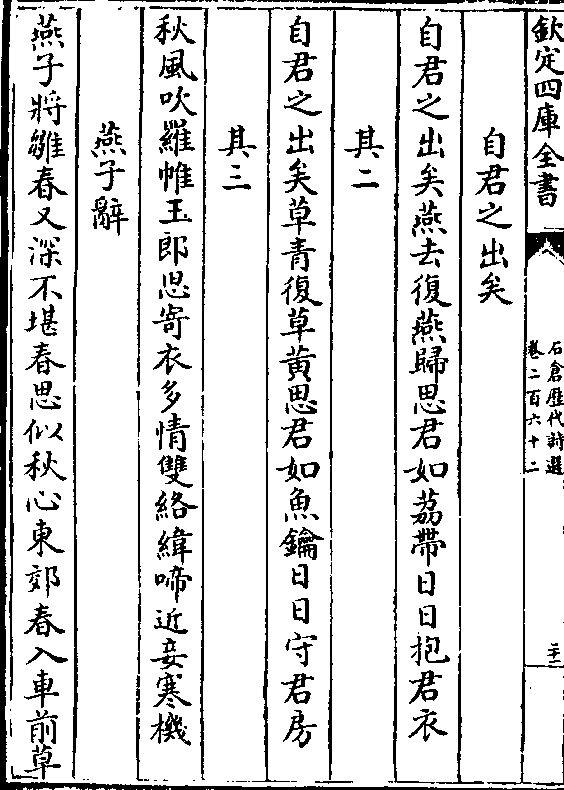 欽定四庫全書
石倉歷代詩選
卷二百六十二
二十二
自君之出矣
自君之出矣燕去復燕歸思君如荔帶日日抱君衣
其二
自君之出矣草青復草黃思君如魚鑰日日守君房
其三
秋風吹羅帷玉郎思寄衣多情雙絡緯啼近妾寒機
燕子辭
燕子將雛春又深不堪春思似秋心東郊春入車前草